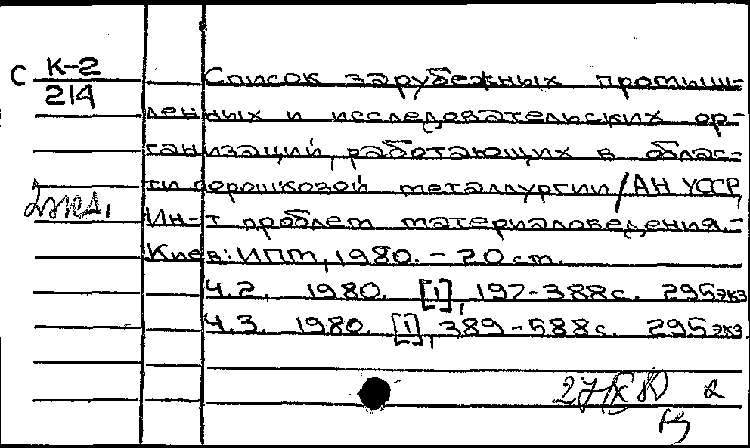 С К-2
214
Список зарубежных промыш-
ленных и исследовательских ор-
ганизаций, работающих в облас-
ти порошковой металлургии/АН УССР,
2 экз.
Ин-т проблем материаловедения.-
Киев: ИПМ, 1980. - 20 cm.
Ч.2. 1980. [1], 197-388 с. 295 экз
Ч.3. 1980. [1], 389-588 с. 295 экз.